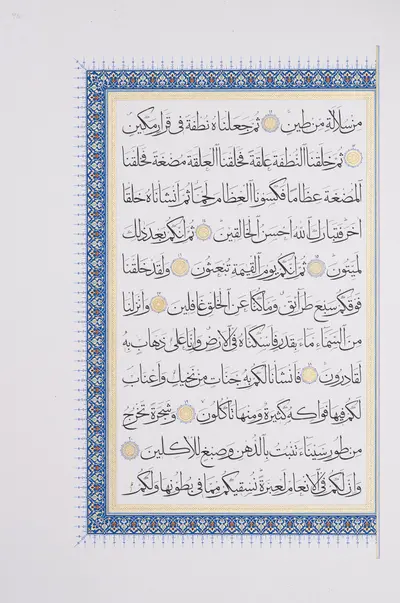 من سلالة من طين ثم جعلناه نطفة في قرار مكين
ثم خلقنا النطفة علقة فخلقنا العلقة مضغة فخلقنا
المضغة عظاما فكسونا العظام لحما ثم أنشأناه خلقا
آخر فتبارك الله أحسن الخالقين ثم إنكم بعد ذلك
لميتون ثم إنكم يوم القيمة تبعثون ولقد خلقنا
فوقكم سبع طرائق وما كنا عن الخلق غافلين وأنزلنا
من السماء ماء بقدر فأسكناه في الأرض وإنا على ذهاب به
لقادرون فأنشأنا لكم به جنات من نخيل وأعناب
لكم فيها فواكه كثيرة ومنها تأكلون وشجرة تخرج
من طور سيناء تنبت بالدهن وصبغ للآكلين
وإن لكم في الأنعام لعبرة نسقيكم مما في بطونها ولكم